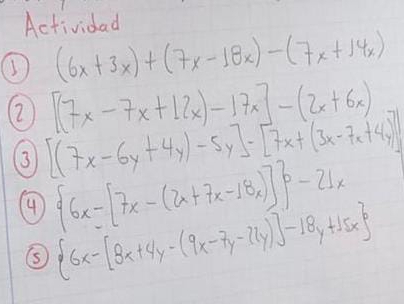 Actividad
① (6x+3x)+(7x-18x)-(7x+14x)
② [(7x-7x+12x)-17x]-(2x+6x)
③ [(7x-6y+4y)-5y]-[7x+(3x-7x+4y)]
④ {6x-[7x-(2x+7x-18x)]}-21x
⑤ {6x-[8x+4y-(9x-7y-22y)]-18y+15x}